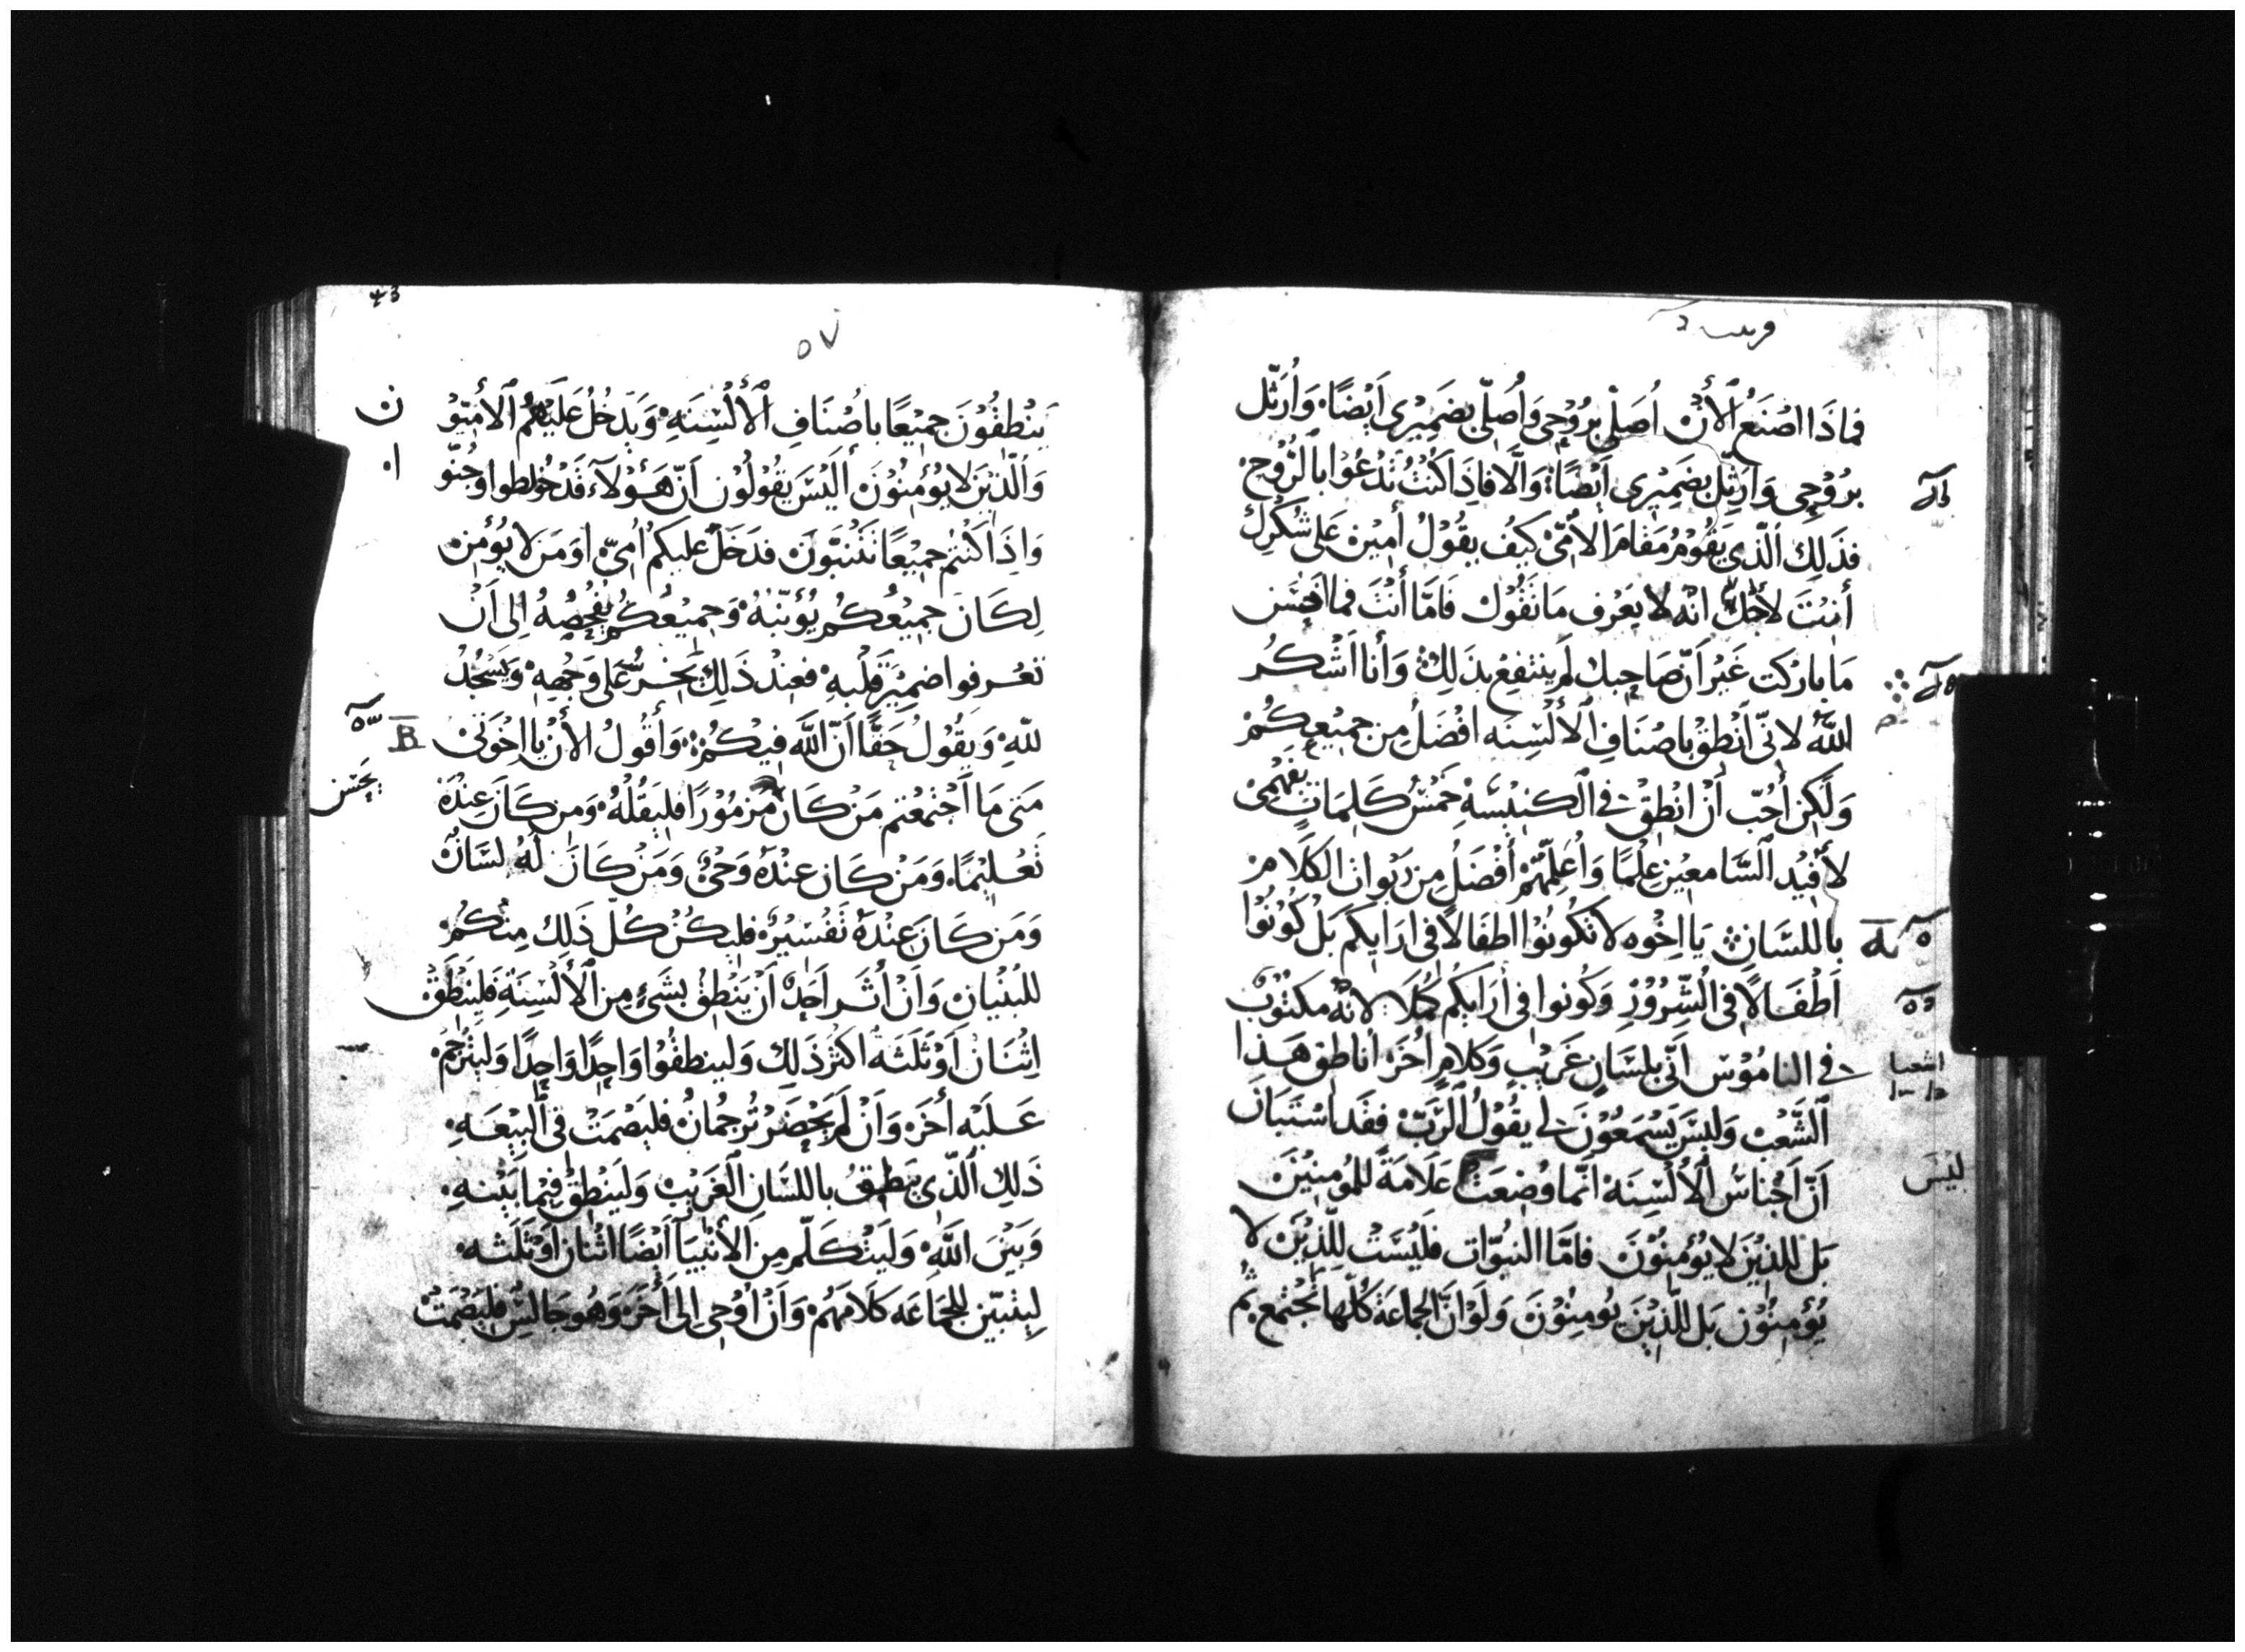 فماذا اصنع الأن اصلي بروحي وأصلي بضميري أيضًا، وأرتّل
بروحي وارتّل بضميري أيضًا والّا فاذا كنت تدعوا بالروح
فذلك الذي يقوم مقام الأمّي كيف يقول أمين على شكرك
أنت لأجل انه لا يعرف ما تقول فامّا أنت فما احسن
ما باركت غير أنّ صاحبك لم ينتفع بذلك وأنا اشكر
الله لانّي أنطق باصناف الألسنه افضل من جميعكم
ولكن أحبّ أن انطق في الكنيسه خمس كلمات بفهمي
لأفيد السامعين علما وأعلّمهم أفضل من ربوان الكلام
باللسان يا اخوه لا تكونوا اطفالا في ارايكم بل كونوا
أطفالا في الشرور وكونوا في أرايكم كملا لانه مكتوب
في الناموس أنّي بلسان غريب وكلام اخر اناطق هذا
الشعب وليس يسمعون لي يقول الرّب فقد استبان
أنّ أجناس الألسنه انّما وضعت علامة للمومنين
بل للذين لا يؤمنون فامّا النبوّات فليست للذين لا
يؤمنون بل للذين يومنون ولو انّ الجماعة كلّها تجتمع ثم
اشعيا
ليس
٥٧
ينطقون جميعًا باصناف الألسنه ويدخل عليهم الأميّو
ن
والذين لا يؤمنون أليس يقولون أنّ هؤلاء قد خولطوا وجنّو
ا
واذا كنتم جميعًا تتنبّون فدخل عليكم أميّ او من لا يؤمن
لكان جميعكم يؤنّبه وجميعكم يفحصه الى أن
تعرفوا ضمير قلبه فعند ذلك يخر على وجهه ويسجد
لله ويقول حقًا انّ الله فيكم وأقول الأن يا اخوتي
متى ما اجتمعتم من كان مزمورًا فليقله ومن كان عنده
يحسن
تعليمًا ومن كان عنده وحي ومن كان له لسان
ومن كان عنده تفسير فليكن كلّ ذلك منكم
للبنيان وأن أثر احد أن ينطق بشيء من الألسنة فلينطق
اثنان أو ثلثة اكثر ذلك ولينطقوا واحدًا واحدًا وليترجم
عليه أخر وأن لم يحضر ترجمان فليصمت في البيعه
ذلك الذي ينطق باللسان الغريب ولينطق فيما بينه
وبين الله وليتكلّم من الأنبيا أيضًا اثنان أو ثلثه
ليتبيّن للجماعه كلامهم وأن أوحي الى أخر وهو جالس فليصمت